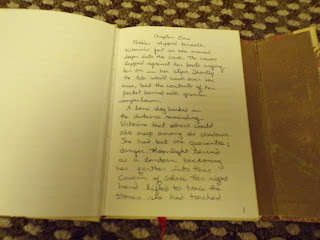 Chapter One
Pebbles slipped beneath
Victorine's feet as she moved
deeper into the cave. The waves
slapped against her boots urging
her on in her steps. Shortly
the tide would wash over the
area, but the contents of her
pocket burned with greater
compulsion.
A lone dog barked in
the distance reminding
Victorine that others could
also creep among the shadows.
She had but one guarantee;
danger. Moonlight served
as a lantern beckoning
her farther into this
Cavern of solace. Her right
hand lifted to trace the
stones she had touched
1